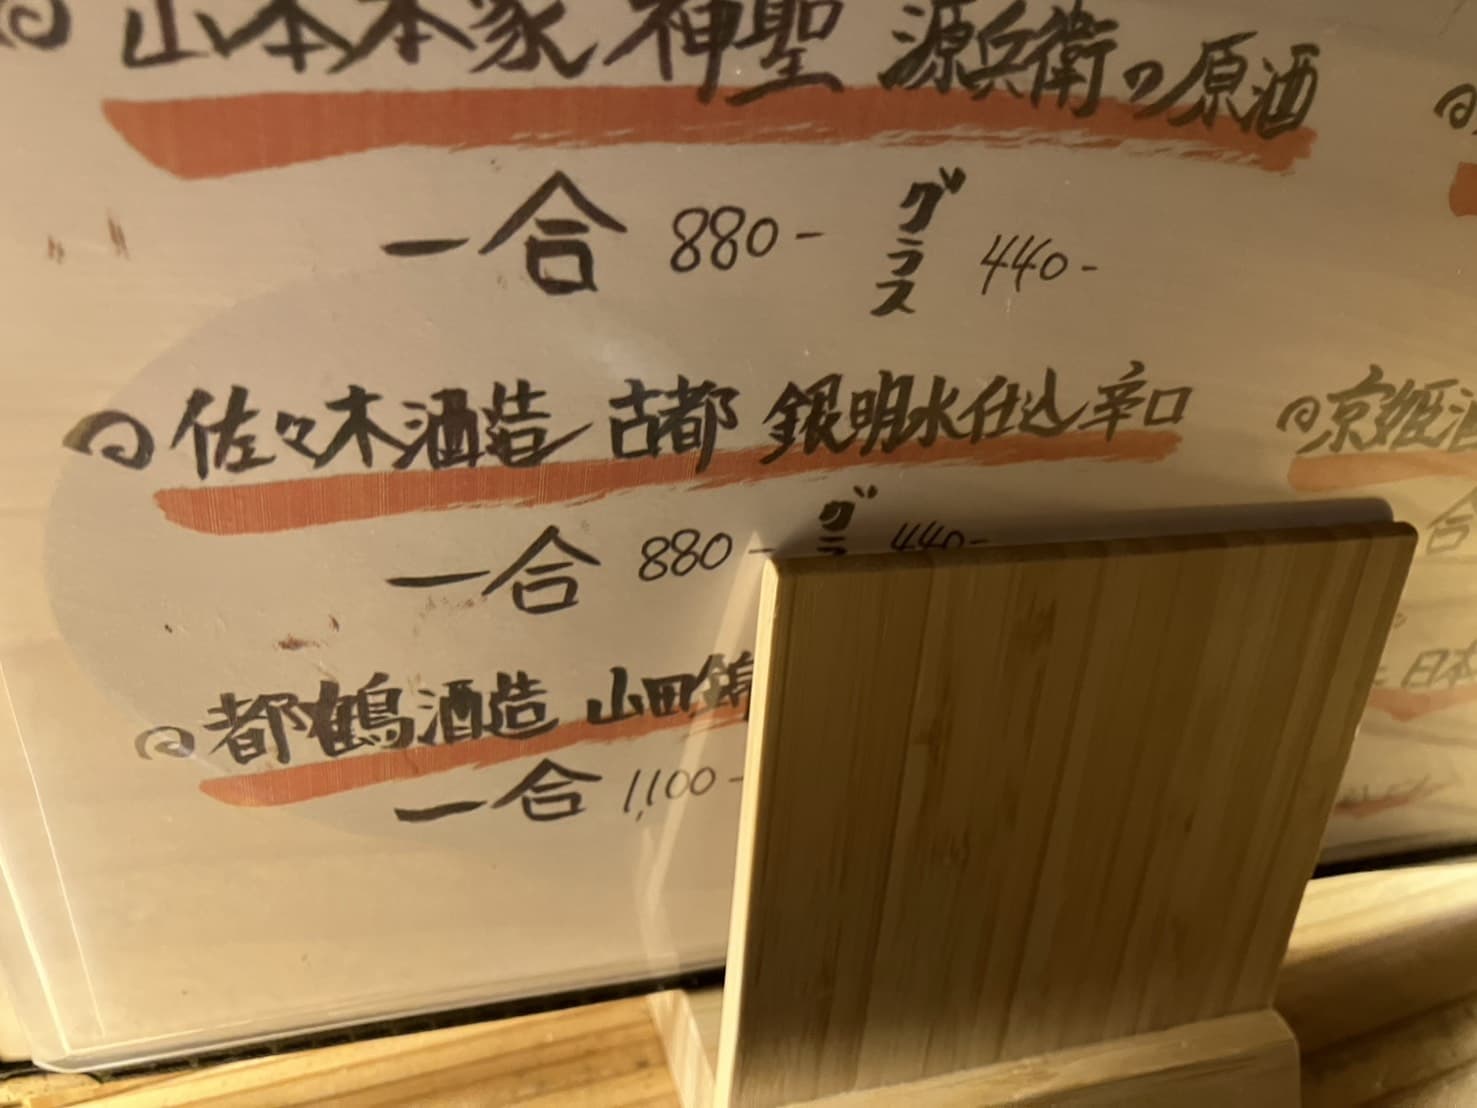 山本本家 神聖 源兵衛の原酒
一合 880- グラス 440-
佐々木酒造 古都 銀明水仕込辛口
一合 880- グラ 440-
都鶴酒造 山田錦
一合 1,100-
京姫酒
合
日本